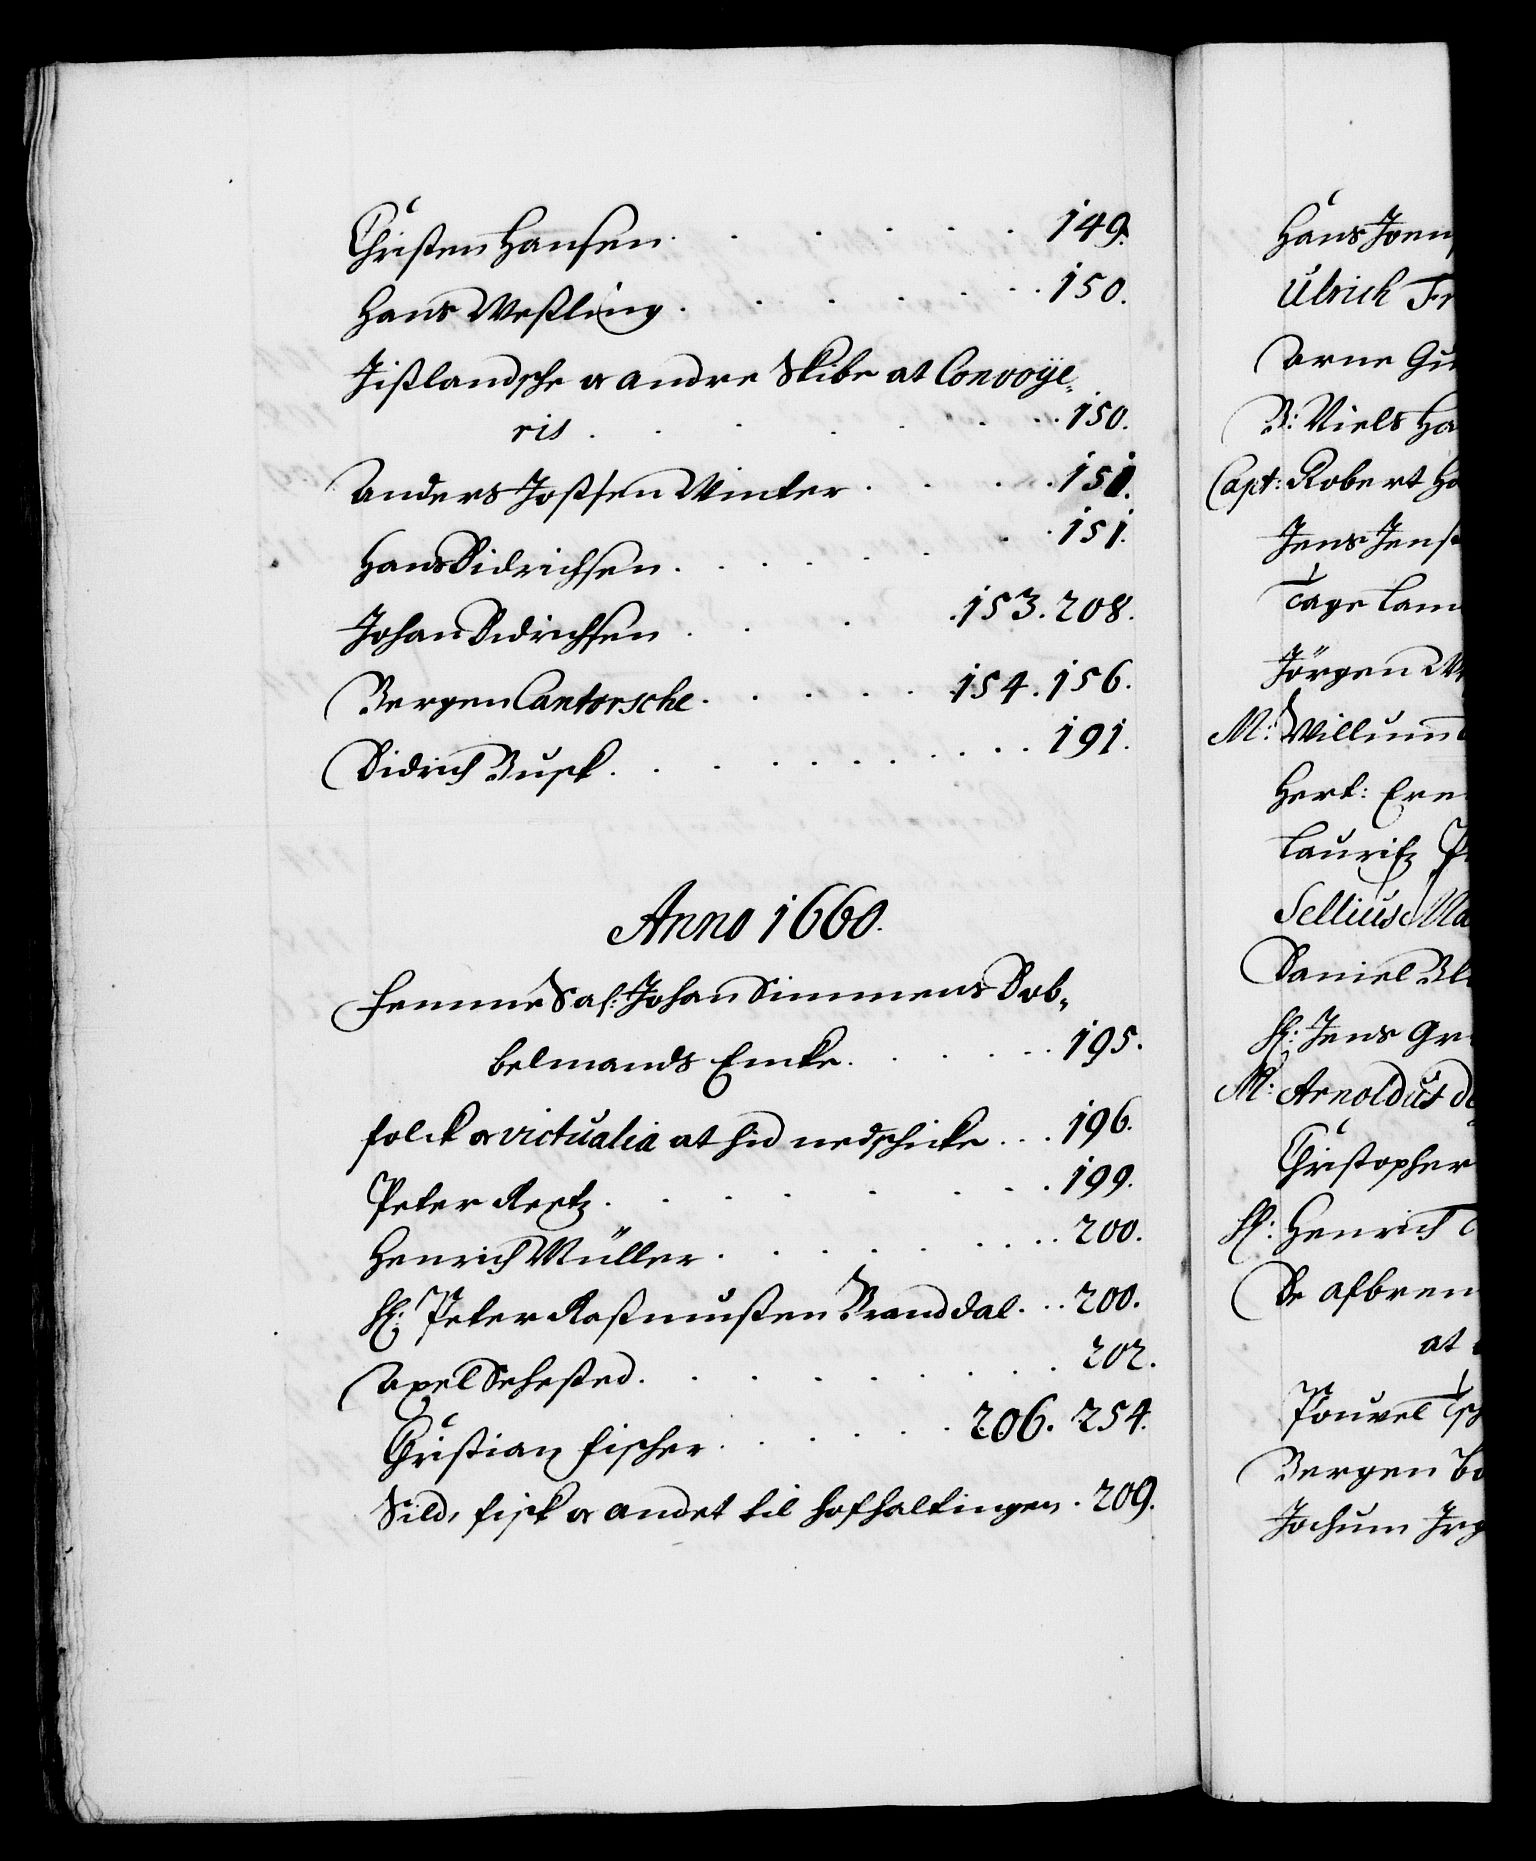 Christen Hansen . . . . . . . 149.
Hans Westling . . . . . . . 150.
Jißlandsche oc andre Skibe at Convoye-
ris . . . . . . . 150.
Anders Jostsen Winter . . . . 151.
Hans Didrichsen . . . . . . 151.
Johan Didrichsen . . . . 153. 208.
Bergen Cantorsche . . . . . 154. 156.
Didrich Busk . . . . . . . . 191.
Anno 1660.
Femmer Sal: Johan Simmens Dob-
belmands Encke . . . . . . 195.
folck oc victualia at hid nedschicke . . . 196.
Peter Reetz . . . . . . . 199.
Henrich Müller . . . . . . . . 200.
H: Peter Rasmussen Branddal . . . 200.
Axel Sehested . . . . . . . . 202.
Christian Fischer . . . . . . 206. 254.
Sild, fisk oc andet til hofhaltingen . 209.
Hans Joen
Ulrich Fr
Arne Gu
B: Niels Ha
Capt: Robert Ho
Jens Jens
Tage Lam
Jörgen
M: Willum
Hert: Ern
Lauritz P
Sellius Ma
Daniel Bl
H: Jens Gr
M: Arnoldus de
Christopher
H: Henrich
De afbren
at
Pouvel
Bergen Bo
Jochum Irg